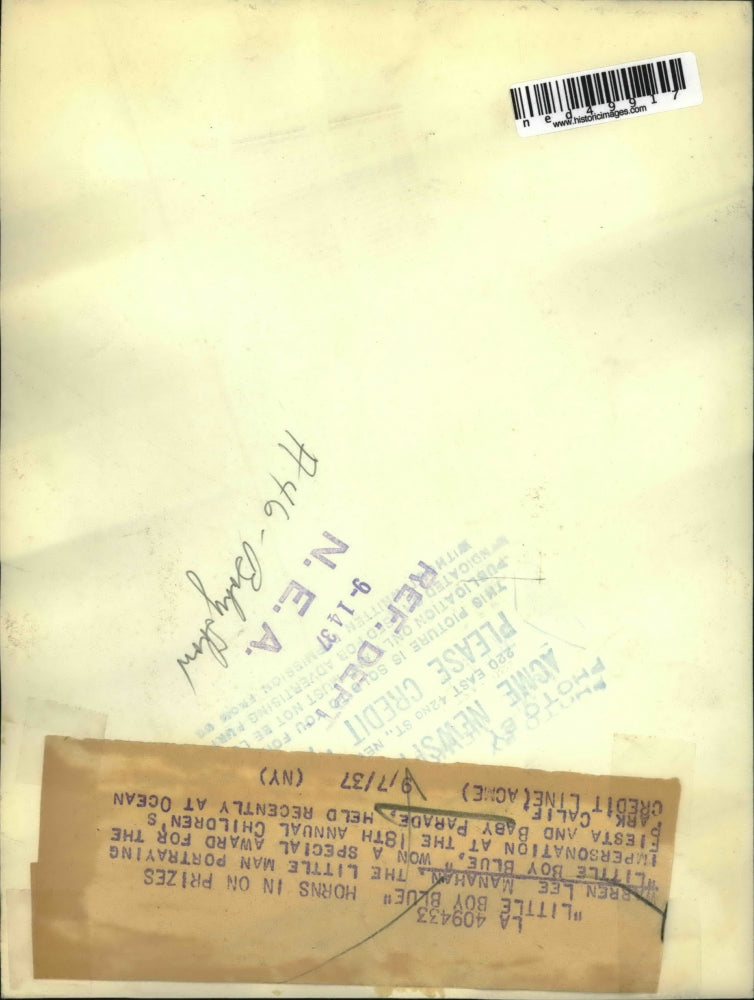 ned49917
www.historicimages.com
A46-Baby Show
N. E. A.
9-14 37
REF. DEPT
PHOTO
PHOTO BY
ACME NEWSP
220 EAST 42ND ST., NE
PLEASE CREDIT
THIS PICTURE IS SOLD TO YOU FOR
PUBLICATION ONLY MUST NOT BE
FOR ADVERTISING
WITH WRITTEN PERMISSION FROM US
LA 409433
"LITTLE BOY BLUE" HORNS IN ON PRIZES
WARREN LEE MANAHAN, THE LITTLE MAN PORTRAYING
"LITTLE BOY BLUE," WON A SPECIAL AWARD FOR THE
IMPERSONATION AT THE 18TH ANNUAL CHILDREN'S
FIESTA AND BABY PARADE, HELD RECENTLY AT OCEAN
PARK, CALIF.
CREDIT LINE (ACME) 9/7/37 (NY)